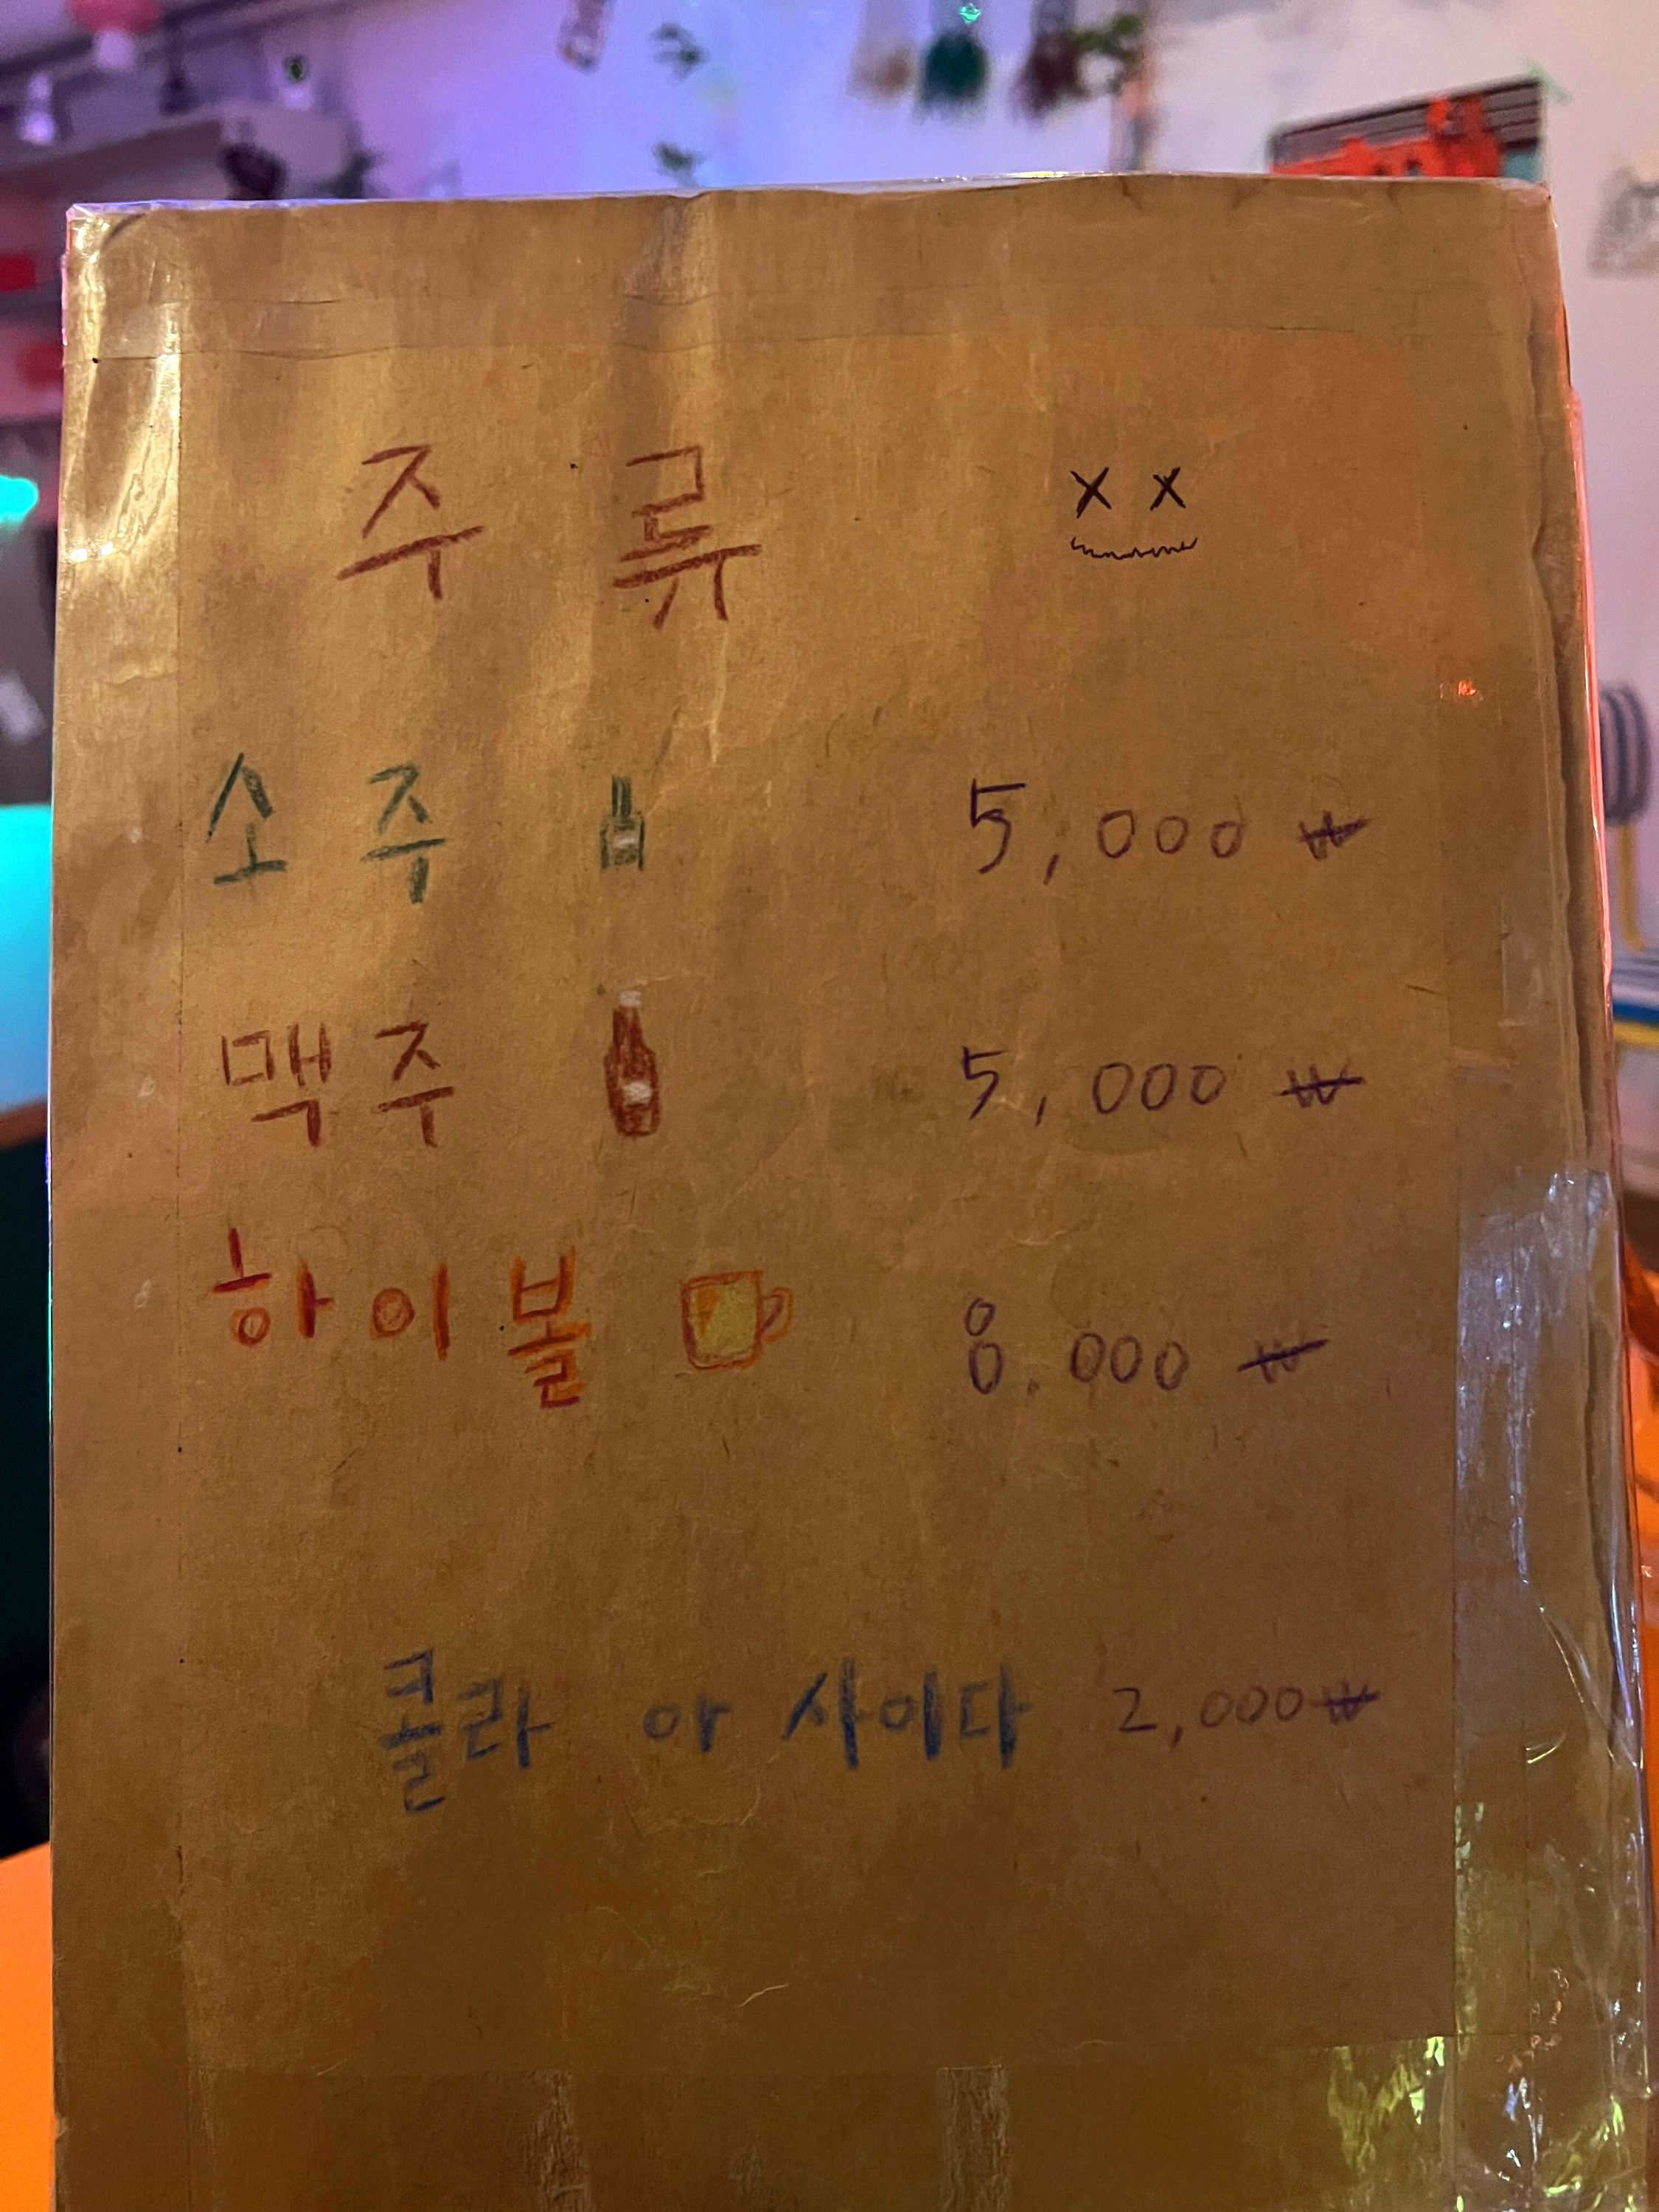 주류
소주 5,000 ₩
맥주 5,000 ₩
하이볼 8.000 ₩
콜라 아 사이다 2,000₩